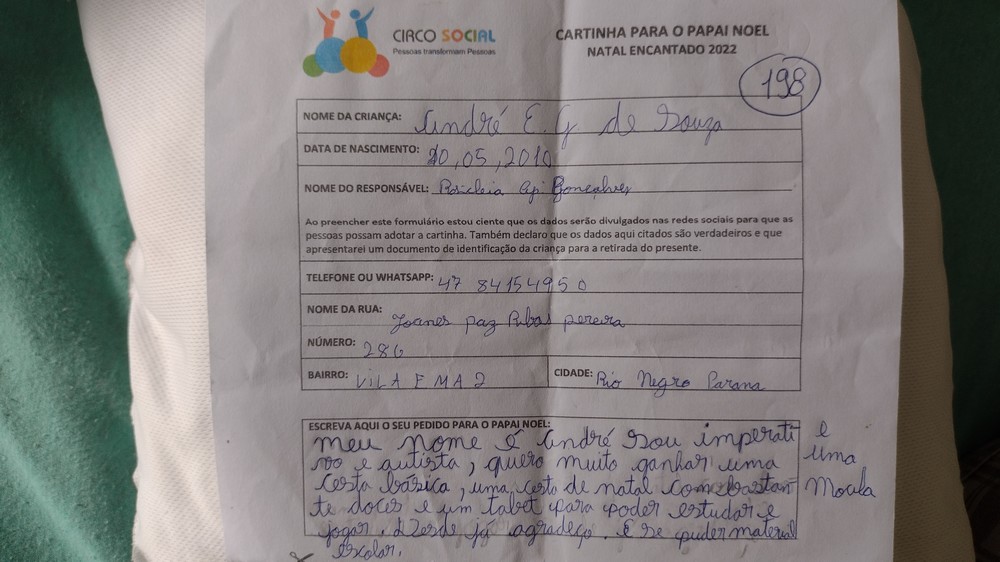 CIRCO SOCIAL
Pessoas transformam Pessoas
CARTINHA PARA O PAPAI NOEL
NATAL ENCANTADO 2022
198
NOME DA CRIANÇA: André E. G. de Souza
DATA DE NASCIMENTO: 10,05,2010
NOME DO RESPONSÁVEL: Rosicleia Ap. Gonçalves
Ao preencher este formulário estou ciente que os dados serão divulgados nas redes sociais para que as
pessoas possam adotar a cartinha. Também declaro que os dados aqui citados são verdadeiros e que
apresentarei um documento de identificação da criança para a retirada do presente.
TELEFONE OU WHATSAPP: 47 84154950
NOME DA RUA: Joanes paz Ribas pereira
NÚMERO: 286
BAIRRO: VILA EMA 2 CIDADE: Rio Negro Parana
ESCREVA AQUI O SEU PEDIDO PARA O PAPAI NOEL:
meu nome é André Sou imperati
vo e autista, quero muito ganhar uma
cesta básica, uma cesta de natal com bastan
te doces e um tablet para poder estudar e
jogar. Desde já agradeço. E se puder material
escolar.
e
uma
Mocula